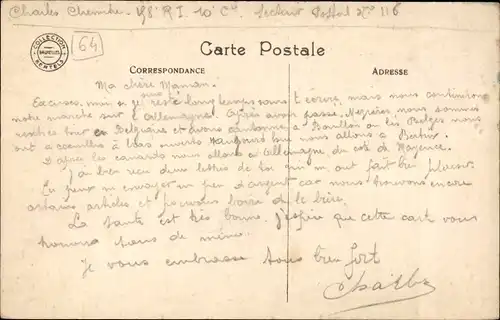 Charles 58e R.I. 10e Cie Secteur Postal No 116
COLLECTION BERTELS BRUXELLES
64
Carte Postale
CORRESPONDANCE
ADRESSE
Ma chère Maman.
Excusez-moi si je suis resté longtemps sans t'écrire, mais nous continuons
notre marche sur l'Allemagne. Après avoir passé Mézières nous sommes
en Belgique et avons cantonné à Bouillon ou les Belges nous
ont à bras ouverts nous allons à Bertrix.
D'après les canards nous allons en Allemagne du coté de Mayence.
J'ai bien reçu deux lettres de toi qui m'ont fait bien plaisir.
Tu peux m'envoyer un peu d'argent car nous trouvons encore
articles et pouvons boire de la bière.
La santé est très bonne. J'espère que cette carte vous
tous de même.
Je vous embrasse tous bien fort
Charles